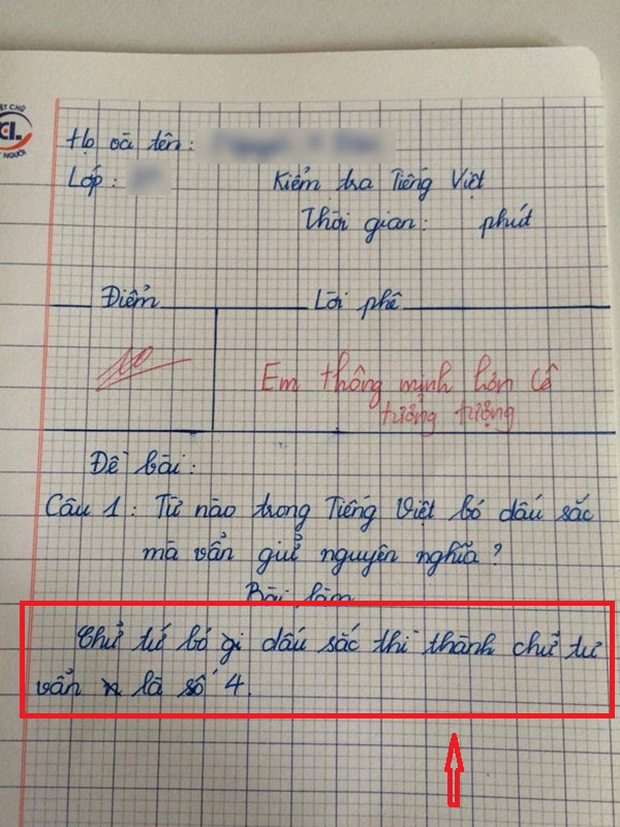 ẾT CHỮ
CL
NGƯỜI
Họ và tên:
Lớp: Kiểm tra Tiếng Việt
Thời gian: phút
Điểm Lời phê
10 Em thông minh hơn Cô
tưởng tượng
Đề bài:
Câu 1: Từ nào trong Tiếng Việt bỏ dấu sắc
mà vẩn giử nguyên nghĩa?
Bài làm
Chử tứ bỏ đi dấu sắc thì thành chử tư
vẩn là số 4.